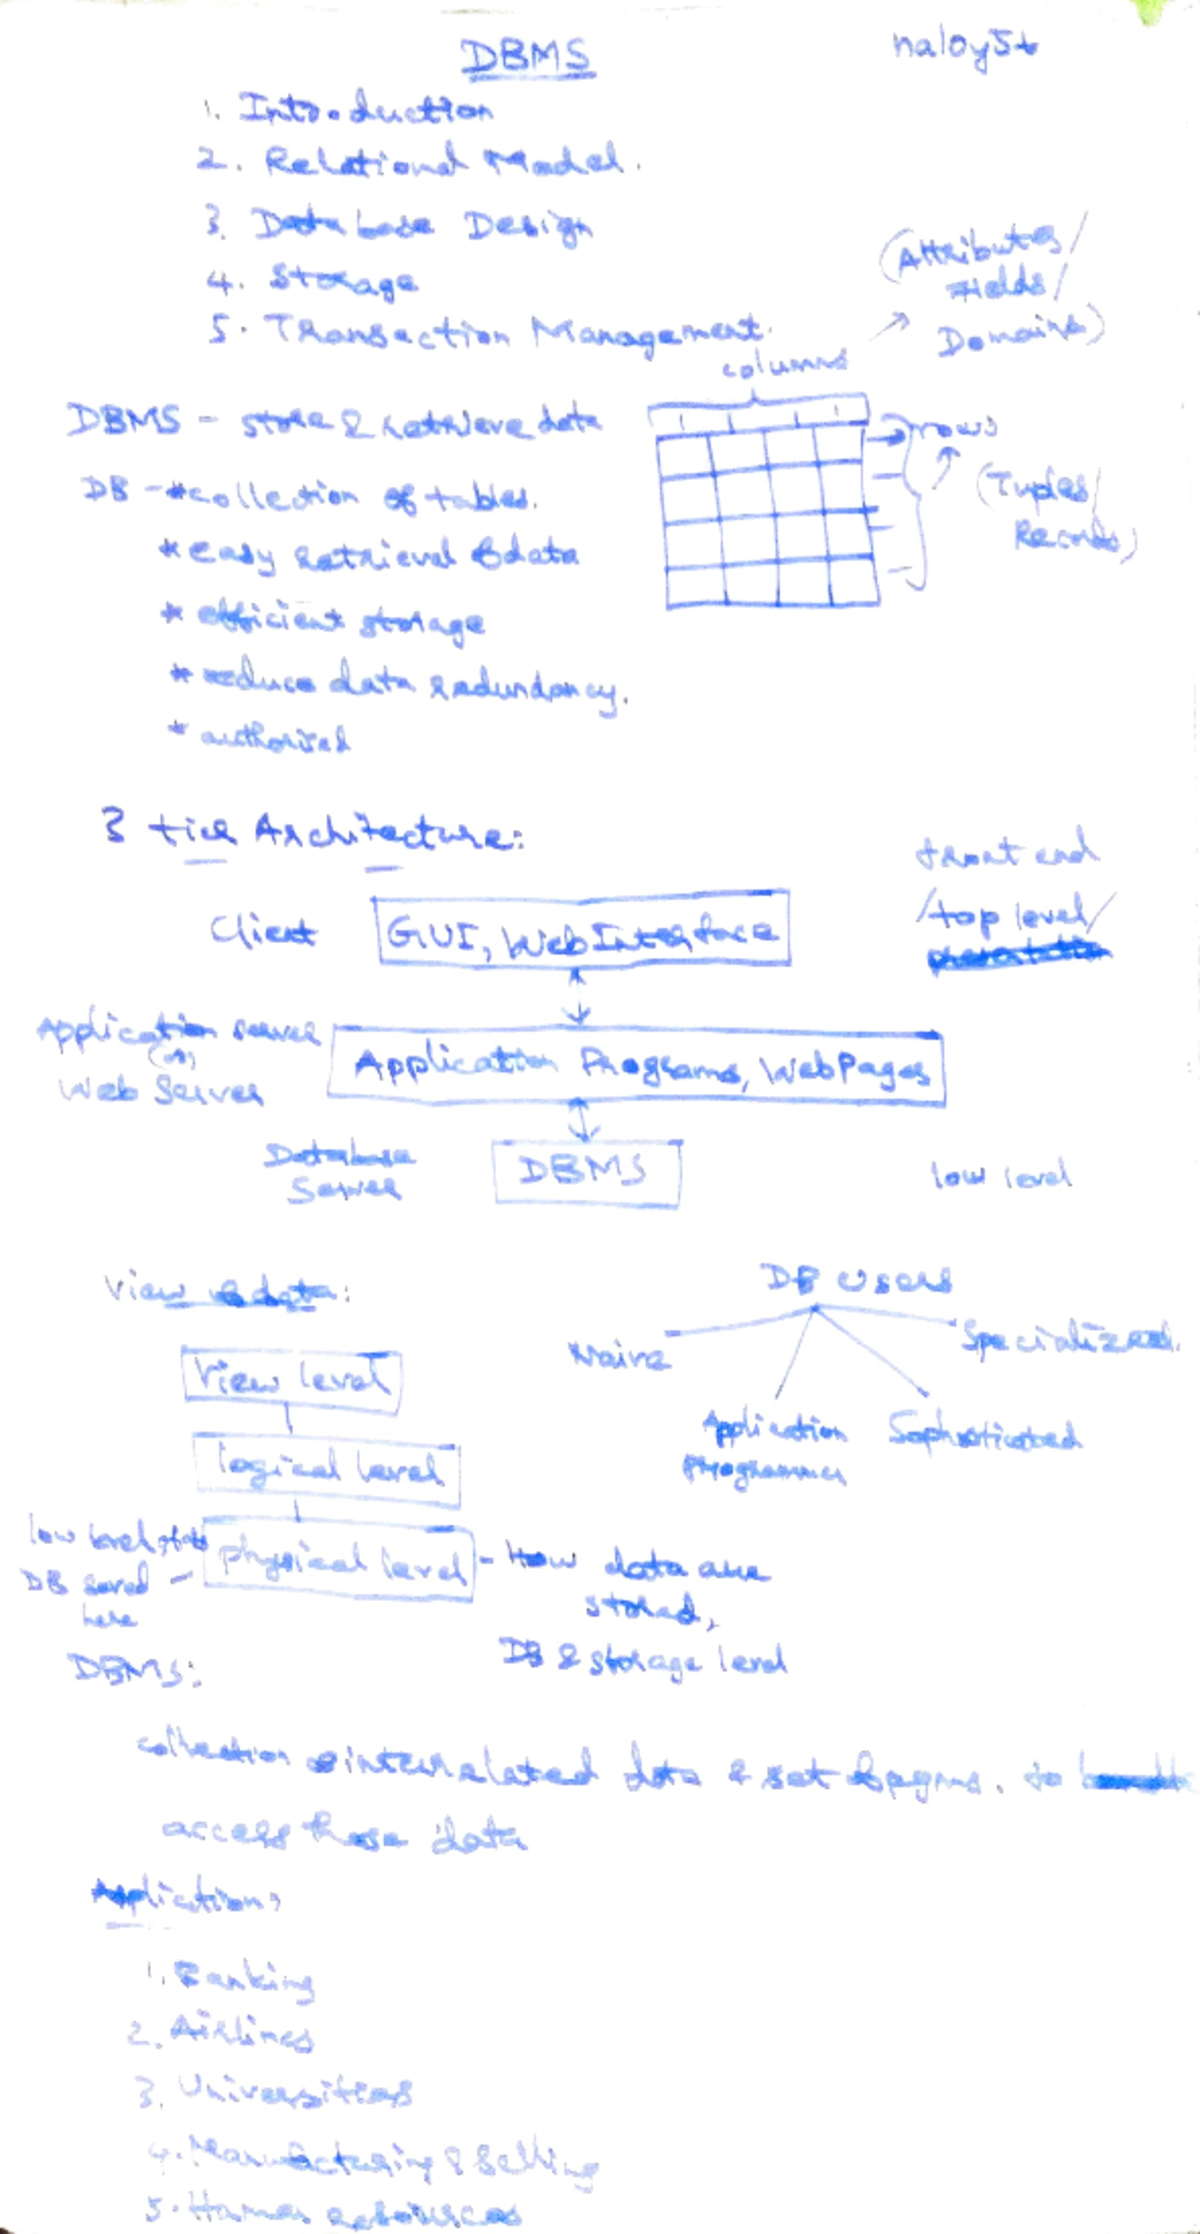 DBMS
naloy5t
1. Introduction
2. Relational Model.
3. Database Design
4. Storage
5. Transaction Management.
(Attributes/
Fields/
Domains)
columns
DBMS - store & retrieve data
rows
(Tuples/
Records)
DB - *collection of tables.
*easy retrieval of data
* efficient storage
* reduce data redundancy.
* authorised
3 tier Architecture:
front end
/top level/
presentation
Client
GUI, Web Interface
Application server
(or)
Web Server
Application Programs, WebPages
Database
Server
DBMS
low level
View of data:
DB Users
Naive
Specialized.
Application
programmer
Sophisticated
View level
logical level
physical level
low level
DB saved
here
- How data are
stored,
DB & storage level
DBMS:
collection of interrelated data & set of pgms. to
access those data
Application:
1. Banking
2. Airlines
3. Universities
4. Manufacturing & Selling
5. Human resources